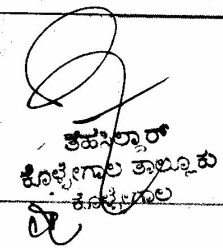 ತಹಸಿಲ್ದಾರ್
ಕೊಳ್ಳೇಗಾಲ ತಾಲ್ಲೂಕು
ಕೊಳ್ಳೇಗಾಲ